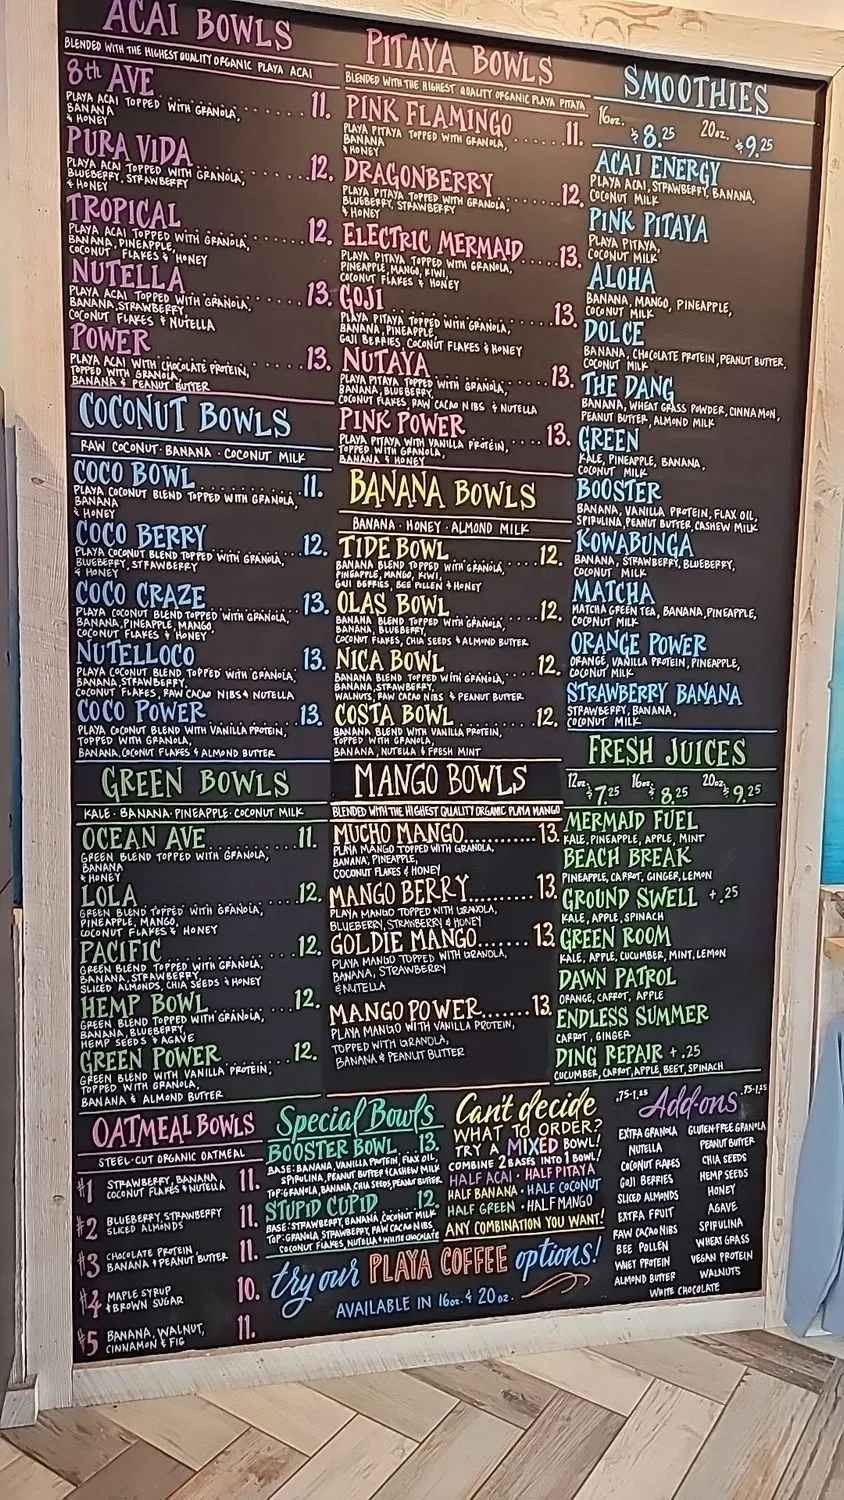 ACAI BOWLS
BLENDED WITH THE HIGHEST QUALITY ORGANIC PLAYA ACAI
8th AVE
PLAYA ACAI TOPPED WITH GRANOLA, ........ 11.
BANANA
& HONEY
PURA VIDA
PLAYA ACAI TOPPED WITH GRANOLA, ........ 12.
BLUEBERRY, STRAWBERRY
& HONEY
TROPICAL
PLAYA ACAI TOPPED WITH GRANOLA, ........ 12.
BANANA, PINEAPPLE,
COCONUT FLAKES & HONEY
NUTELLA
PLAYA ACAI TOPPED WITH GRANOLA, ........ 13.
BANANA, STRAWBERRY,
COCONUT FLAKES & NUTELLA
POWER
PLAYA ACAI WITH CHOCOLATE PROTEIN, .... 13.
TOPPED WITH GRANOLA,
BANANA & PEANUT BUTTER
COCONUT BOWLS
RAW COCONUT · BANANA · COCONUT MILK
COCO BOWL
PLAYA COCONUT BLEND TOPPED WITH GRANOLA, .. 11.
BANANA
& HONEY
COCO BERRY
PLAYA COCONUT BLEND TOPPED WITH GRANOLA, ... 12.
BLUEBERRY, STRAWBERRY
& HONEY
COCO CRAZE
PLAYA COCONUT BLEND TOPPED WITH GRANOLA, .. 13.
BANANA, PINEAPPLE, MANGO
COCONUT FLAKES & HONEY
NUTELLOCO
PLAYA COCONUT BLEND TOPPED WITH GRANOLA, 13.
BANANA, STRAWBERRY,
COCONUT FLAKES, RAW CACAO NIBS & NUTELLA
COCO POWER
PLAYA COCONUT BLEND WITH VANILLA PROTEIN, .. 13.
TOPPED WITH GRANOLA,
BANANA, COCONUT FLAKES & ALMOND BUTTER
GREEN BOWLS
KALE · BANANA · PINEAPPLE · COCONUT MILK
OCEAN AVE ........ 11.
GREEN BLEND TOPPED WITH GRANOLA,
BANANA
& HONEY
LOLA ........ 12.
GREEN BLEND TOPPED WITH GRANOLA,
PINEAPPLE, MANGO,
COCONUT FLAKES & HONEY
PACIFIC ........ 12.
GREEN BLEND TOPPED WITH GRANOLA,
BANANA, STRAWBERRY,
SLICED ALMONDS, CHIA SEEDS & HONEY
HEMP BOWL ........ 12.
GREEN BLEND TOPPED WITH GRANOLA,
BANANA, BLUEBERRY,
HEMP SEEDS & AGAVE
GREEN POWER ........ 12.
GREEN BLEND WITH VANILLA PROTEIN,
TOPPED WITH GRANOLA,
BANANA & ALMOND BUTTER
OATMEAL BOWLS
STEEL-CUT ORGANIC OATMEAL
#1 STRAWBERRY, BANANA, 11.
COCONUT FLAKES & NUTELLA
#2 BLUEBERRY, STRAWBERRY 11.
SLICED ALMONDS
#3 CHOCOLATE PROTEIN, 11.
BANANA & PEANUT BUTTER
#4 MAPLE SYRUP 10.
& BROWN SUGAR
#5 BANANA, WALNUT, 11.
CINNAMON & FIG
PITAYA BOWLS
BLENDED WITH THE HIGHEST QUALITY ORGANIC PLAYA PITAYA
PINK FLAMINGO
PLAYA PITAYA TOPPED WITH GRANOLA, ........ 11.
BANANA
& HONEY
DRAGONBERRY
PLAYA PITAYA TOPPED WITH GRANOLA, ........ 12.
BLUEBERRY, STRAWBERRY,
& HONEY
ELECTRIC MERMAID
PLAYA PITAYA TOPPED WITH GRANOLA, ........ 13.
PINEAPPLE, MANGO, KIWI,
COCONUT FLAKES & HONEY
GOJI
PLAYA PITAYA TOPPED WITH GRANOLA, ........ 13.
BANANA, PINEAPPLE,
GOJI BERRIES, COCONUT FLAKES & HONEY
NUTAYA
PLAYA PITAYA TOPPED WITH GRANOLA, ........ 13.
BANANA, BLUEBERRY,
COCONUT FLAKES, RAW CACAO NIBS & NUTELLA
PINK POWER
PLAYA PITAYA WITH VANILLA PROTEIN, .... 13.
TOPPED WITH GRANOLA,
BANANA & HONEY
BANANA BOWLS
BANANA · HONEY · ALMOND MILK
TIDE BOWL
BANANA BLEND TOPPED WITH GRANOLA, .... 12.
PINEAPPLE, MANGO, KIWI,
GOJI BERRIES, BEE POLLEN & HONEY
OLAS BOWL
BANANA BLEND TOPPED WITH GRANOLA, .... 12.
BANANA, BLUEBERRY,
COCONUT FLAKES, CHIA SEEDS & ALMOND BUTTER
NICA BOWL
BANANA BLEND TOPPED WITH GRANOLA, .... 12.
BANANA, STRAWBERRY,
WALNUTS, RAW CACAO NIBS & PEANUT BUTTER
COSTA BOWL
BANANA BLEND WITH VANILLA PROTEIN, .... 12.
TOPPED WITH GRANOLA,
BANANA, NUTELLA & FRESH MINT
MANGO BOWLS
BLENDED WITH THE HIGHEST QUALITY ORGANIC PLAYA MANGO
MUCHO MANGO ........ 13.
PLAYA MANGO TOPPED WITH GRANOLA,
BANANA, PINEAPPLE,
COCONUT FLAKES & HONEY
MANGO BERRY ........ 13.
PLAYA MANGO TOPPED WITH GRANOLA,
BLUEBERRY, STRAWBERRY & HONEY
GOLDIE MANGO ........ 13.
PLAYA MANGO TOPPED WITH GRANOLA,
BANANA, STRAWBERRY
& NUTELLA
MANGO POWER ....... 13.
PLAYA MANGO WITH VANILLA PROTEIN,
TOPPED WITH GRANOLA,
BANANA & PEANUT BUTTER
Special Bowls
BOOSTER BOWL .. 13.
BASE: BANANA, VANILLA PROTEIN, FLAX OIL,
SPIRULINA, PEANUT BUTTER & CASHEW MILK
TOP: GRANOLA, BANANA, CHIA SEEDS, PEANUT BUTTER
STUPID CUPID .... 12.
BASE: STRAWBERRY, BANANA, COCONUT MILK
TOP: GRANOLA, STRAWBERRY, RAW CACAO NIBS,
COCONUT FLAKES, NUTELLA & WHITE CHOCOLATE
Can't decide
WHAT TO ORDER?
TRY A MIXED BOWL!
COMBINE 2 BASES INTO 1 BOWL!
HALF ACAI · HALF PITAYA
HALF BANANA · HALF COCONUT
HALF GREEN · HALF MANGO
ANY COMBINATION YOU WANT!
try our PLAYA COFFEE options!
AVAILABLE IN 16oz. & 20oz.
SMOOTHIES
16oz. $8.25 20oz. $9.25
ACAI ENERGY
PLAYA ACAI, STRAWBERRY, BANANA,
COCONUT MILK
PINK PITAYA
PLAYA PITAYA,
COCONUT MILK
ALOHA
BANANA, MANGO, PINEAPPLE,
COCONUT MILK
DOLCE
BANANA, CHOCOLATE PROTEIN, PEANUT BUTTER,
COCONUT MILK
THE DANG
BANANA, WHEAT GRASS POWDER, CINNAMON,
PEANUT BUTTER, ALMOND MILK
GREEN
KALE, PINEAPPLE, BANANA,
COCONUT MILK
BOOSTER
BANANA, VANILLA PROTEIN, FLAX OIL,
SPIRULINA, PEANUT BUTTER, CASHEW MILK
KOWABUNGA
BANANA, STRAWBERRY, BLUEBERRY,
COCONUT MILK
MATCHA
MATCHA GREEN TEA, BANANA, PINEAPPLE,
COCONUT MILK
ORANGE POWER
ORANGE, VANILLA PROTEIN, PINEAPPLE,
COCONUT MILK
STRAWBERRY BANANA
STRAWBERRY, BANANA,
COCONUT MILK
FRESH JUICES
12oz. $7.25 16oz. $8.25 20oz. $9.25
MERMAID FUEL
KALE, PINEAPPLE, APPLE, MINT
BEACH BREAK
PINEAPPLE, CARROT, GINGER, LEMON
GROUND SWELL +.25
KALE, APPLE, SPINACH
GREEN ROOM
KALE, APPLE, CUCUMBER, MINT, LEMON
DAWN PATROL
ORANGE, CARROT, APPLE
ENDLESS SUMMER
CARROT, GINGER
DING REPAIR +.25
CUCUMBER, CARROT, APPLE, BEET, SPINACH
.75-1.25 Add-ons .75-1.25
EXTRA GRANOLA GLUTEN-FREE GRANOLA
NUTELLA PEANUT BUTTER
COCONUT FLAKES CHIA SEEDS
GOJI BERRIES HEMP SEEDS
SLICED ALMONDS HONEY
EXTRA FRUIT AGAVE
RAW CACAO NIBS SPIRULINA
BEE POLLEN WHEAT GRASS
WHEY PROTEIN VEGAN PROTEIN
ALMOND BUTTER WALNUTS
WHITE CHOCOLATE